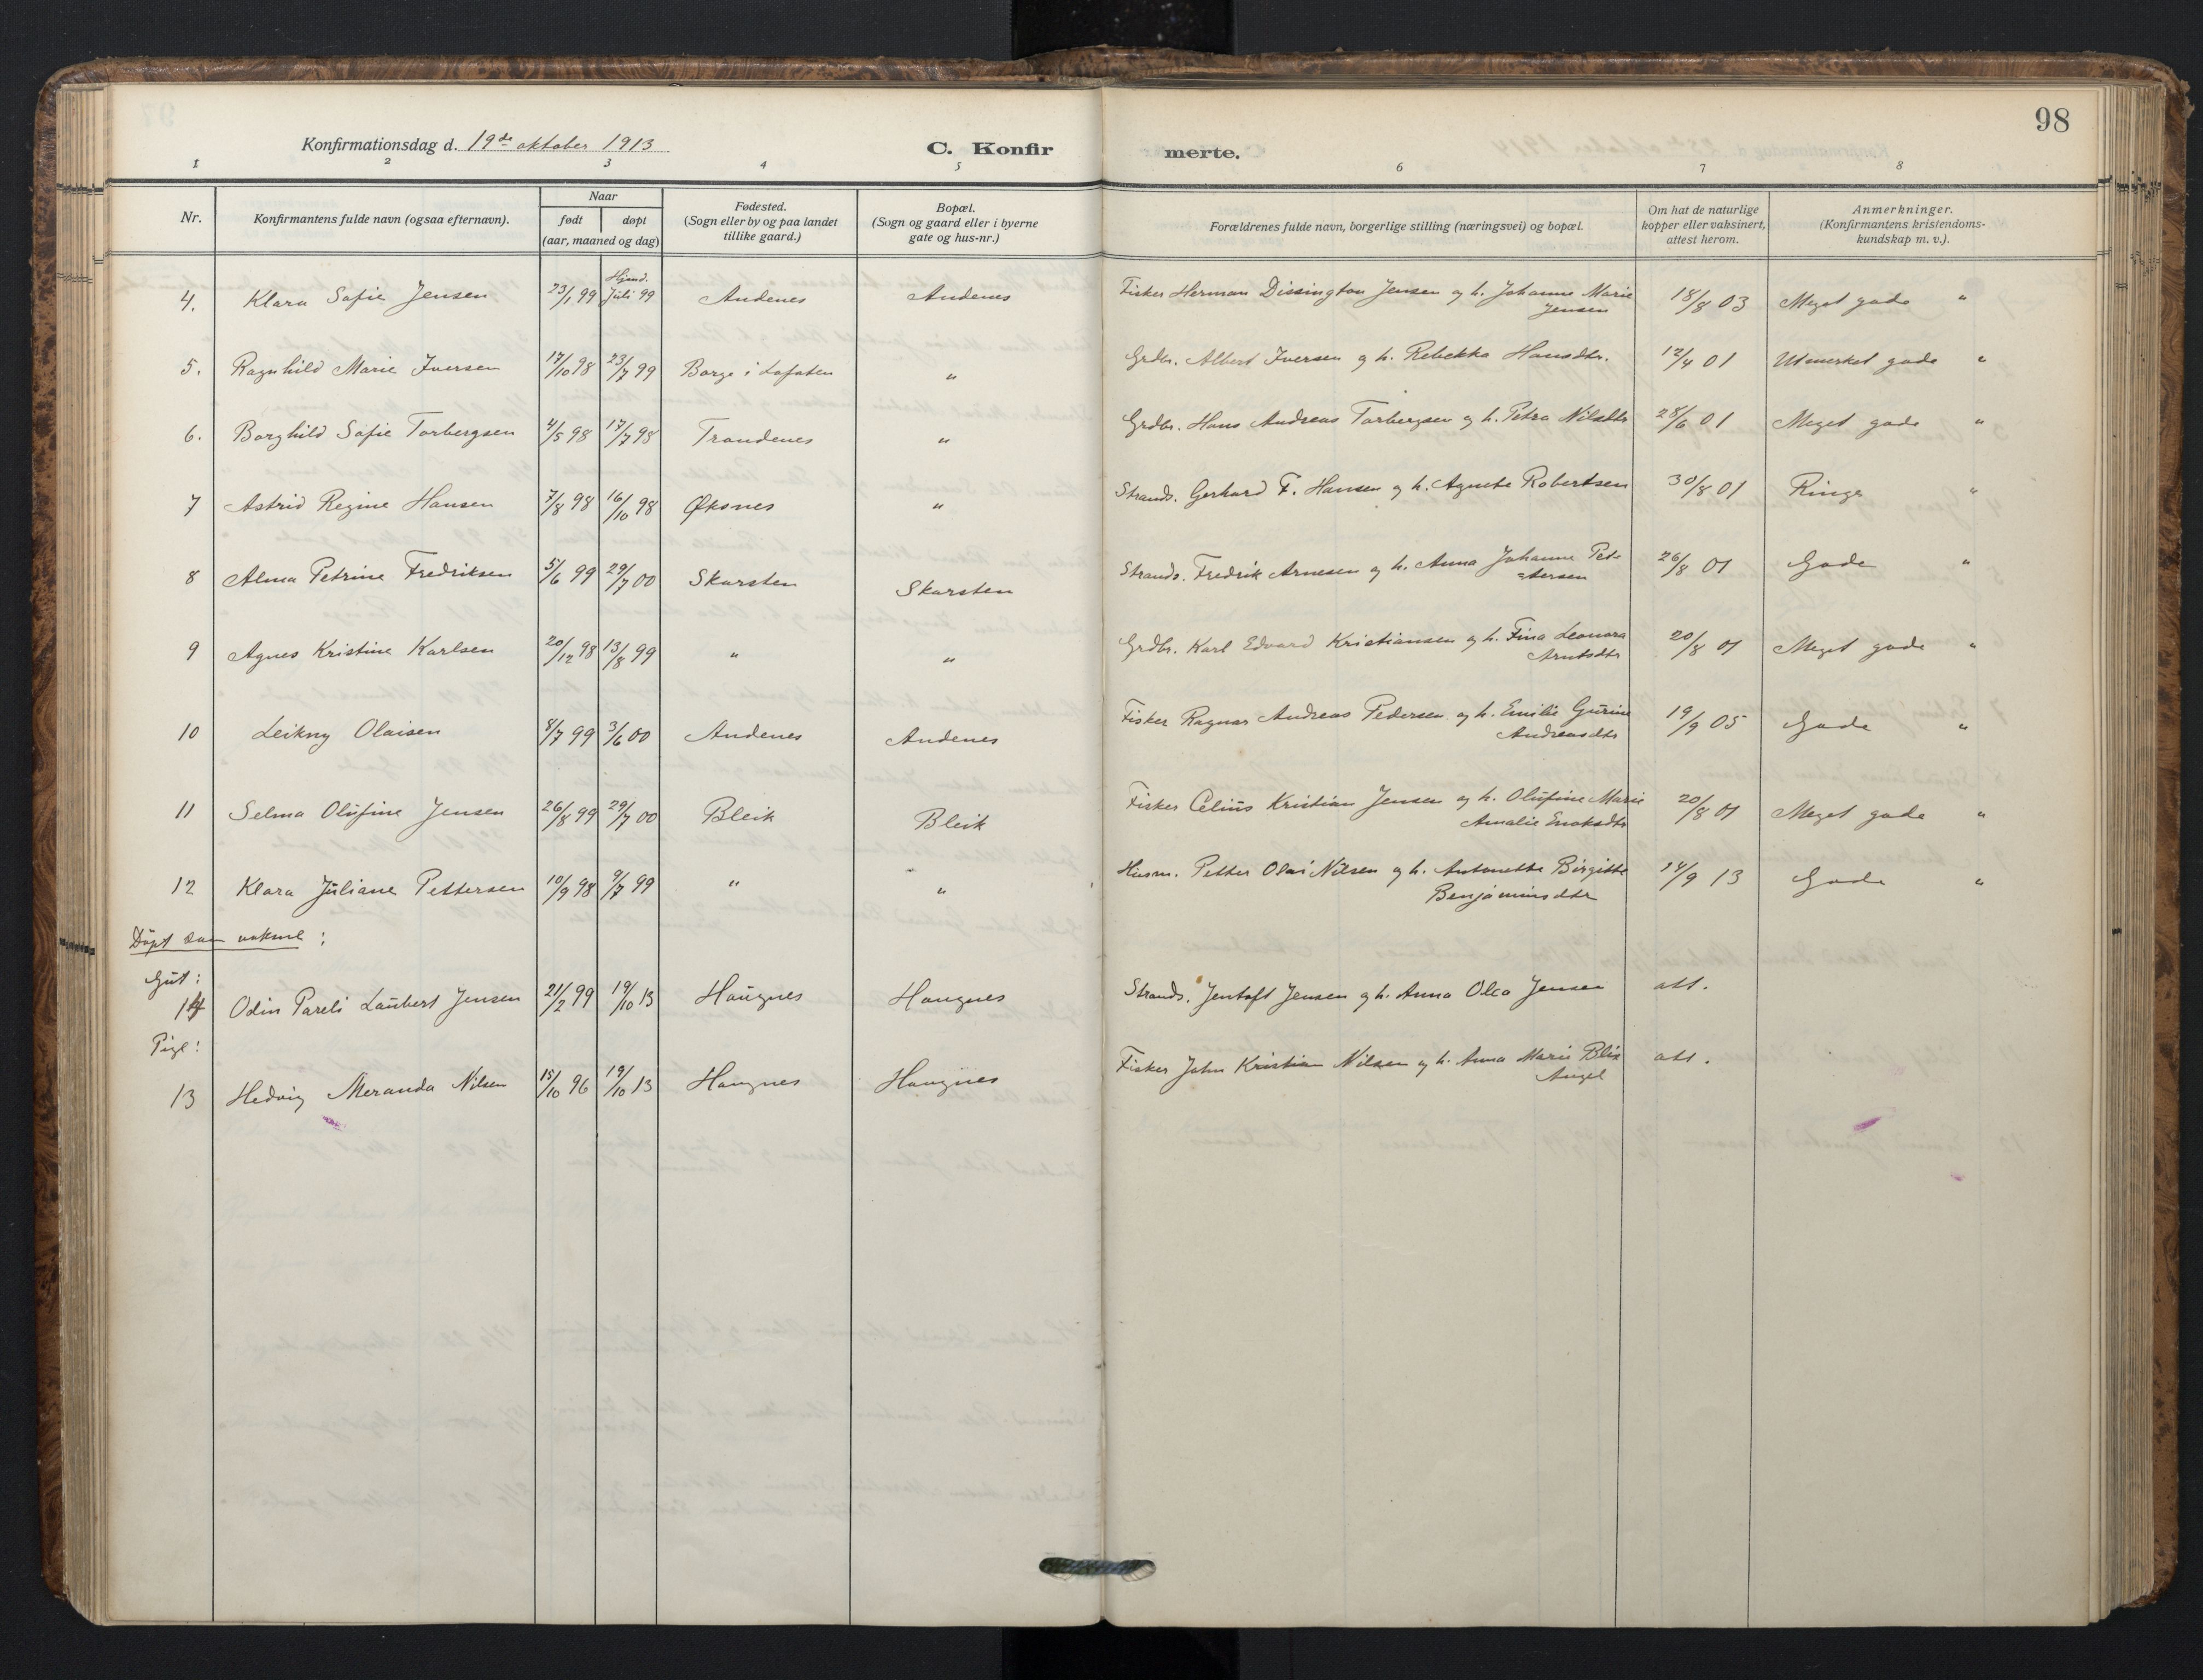 98
Konfirmationsdag d. 19de oktober 1913
C. Konfirmerte.
1 2 3 4 5 6 7 8
Nr.
Konfirmantens fulde navn (ogsaa efternavn).
Naar
født døpt
(aar, maaned og dag)
Fødested.
(Sogn eller by og paa landet
tillike gaard.)
Bopæl.
(Sogn og gaard eller i byerne
gate og hus-nr.)
Forældrenes fulde navn, borgerlige stilling (næringsvei) og bopæl.
Om hat de naturlige
kopper eller vaksinert,
attest herom.
Anmerkninger.
(Konfirmantens kristendoms-
kundskap m. v.).
4. Klara Sofie Jensen 23/1 99 Hjemd. Juli 99 Andenes Andenes Fisker Herman Dissington Jensen og h. Johanne Marie Jensen 18/8 03 Meget gode "
5. Ragnhild Marie Iversen 17/10 98 23/7 99 Borge i Lofoten " Grdbr. Albert Iversen og h. Rebekka Hansdtr. 12/4 01 Utmerket gode "
6. Borghild Sofie Torbergsen 4/5 98 17/7 98 Trondenes " Grdbr. Hans Andreas Torbergsen og h. Petra Nilsdtr 28/6 01 Meget gode "
7 Astrid Regine Hansen 7/8 98 16/10 98 Øksnes " Strands. Gerhard F. Hansen og h. Agnete Robertsen 30/8 01 Ringe "
8 Alma Petrine Fredriksen 5/6 99 29/7 00 Skarsten Skarsten Strands. Fredrik Arnesen og h. Anna Johanne Pet-
=tersen 26/8 01 Gode "
9 Agnes Kristine Karlsen 20/12 98 13/8 99 " " Grdbr. Karl Edvard Kristiansen og h. Fina Leonora
Arntsdtr 20/8 01 Meget gode "
10 Leikny Olaisen 8/7 99 3/6 00 Andenes Andenes Fisker Ragnar Andreas Pedersen og h. Emilie Gurine
Andreasdtr 19/9 05 Gode "
11 Selma Olufine Jensen 26/8 99 29/7 00 Bleik Bleik Fisker Celius Kristian Jensen og h. Olufine Marie
Amalie Enoksdtr 20/8 01 Meget gode "
12 Klara Juliane Pettersen 10/9 98 9/7 99 " " Husm. Petter Olai Nilsen og h. Antonette Birgitte
Benjaminsdtr 14/9 13 Gode "
Døpt som voksne:
Gut:
14 Odin Pareli Laubert Jensen 21/2 99 19/10 13 Haugnes Haugnes Strands. Jentoft Jensen og h. Anna Olea Jensen att.
Pige:
13 Hedvig Meranda Nilsen 15/10 96 19/10 13 Haugnes Haugnes Fisker John Kristian Nilsen og h. Anna Marie Blix
Angel att.